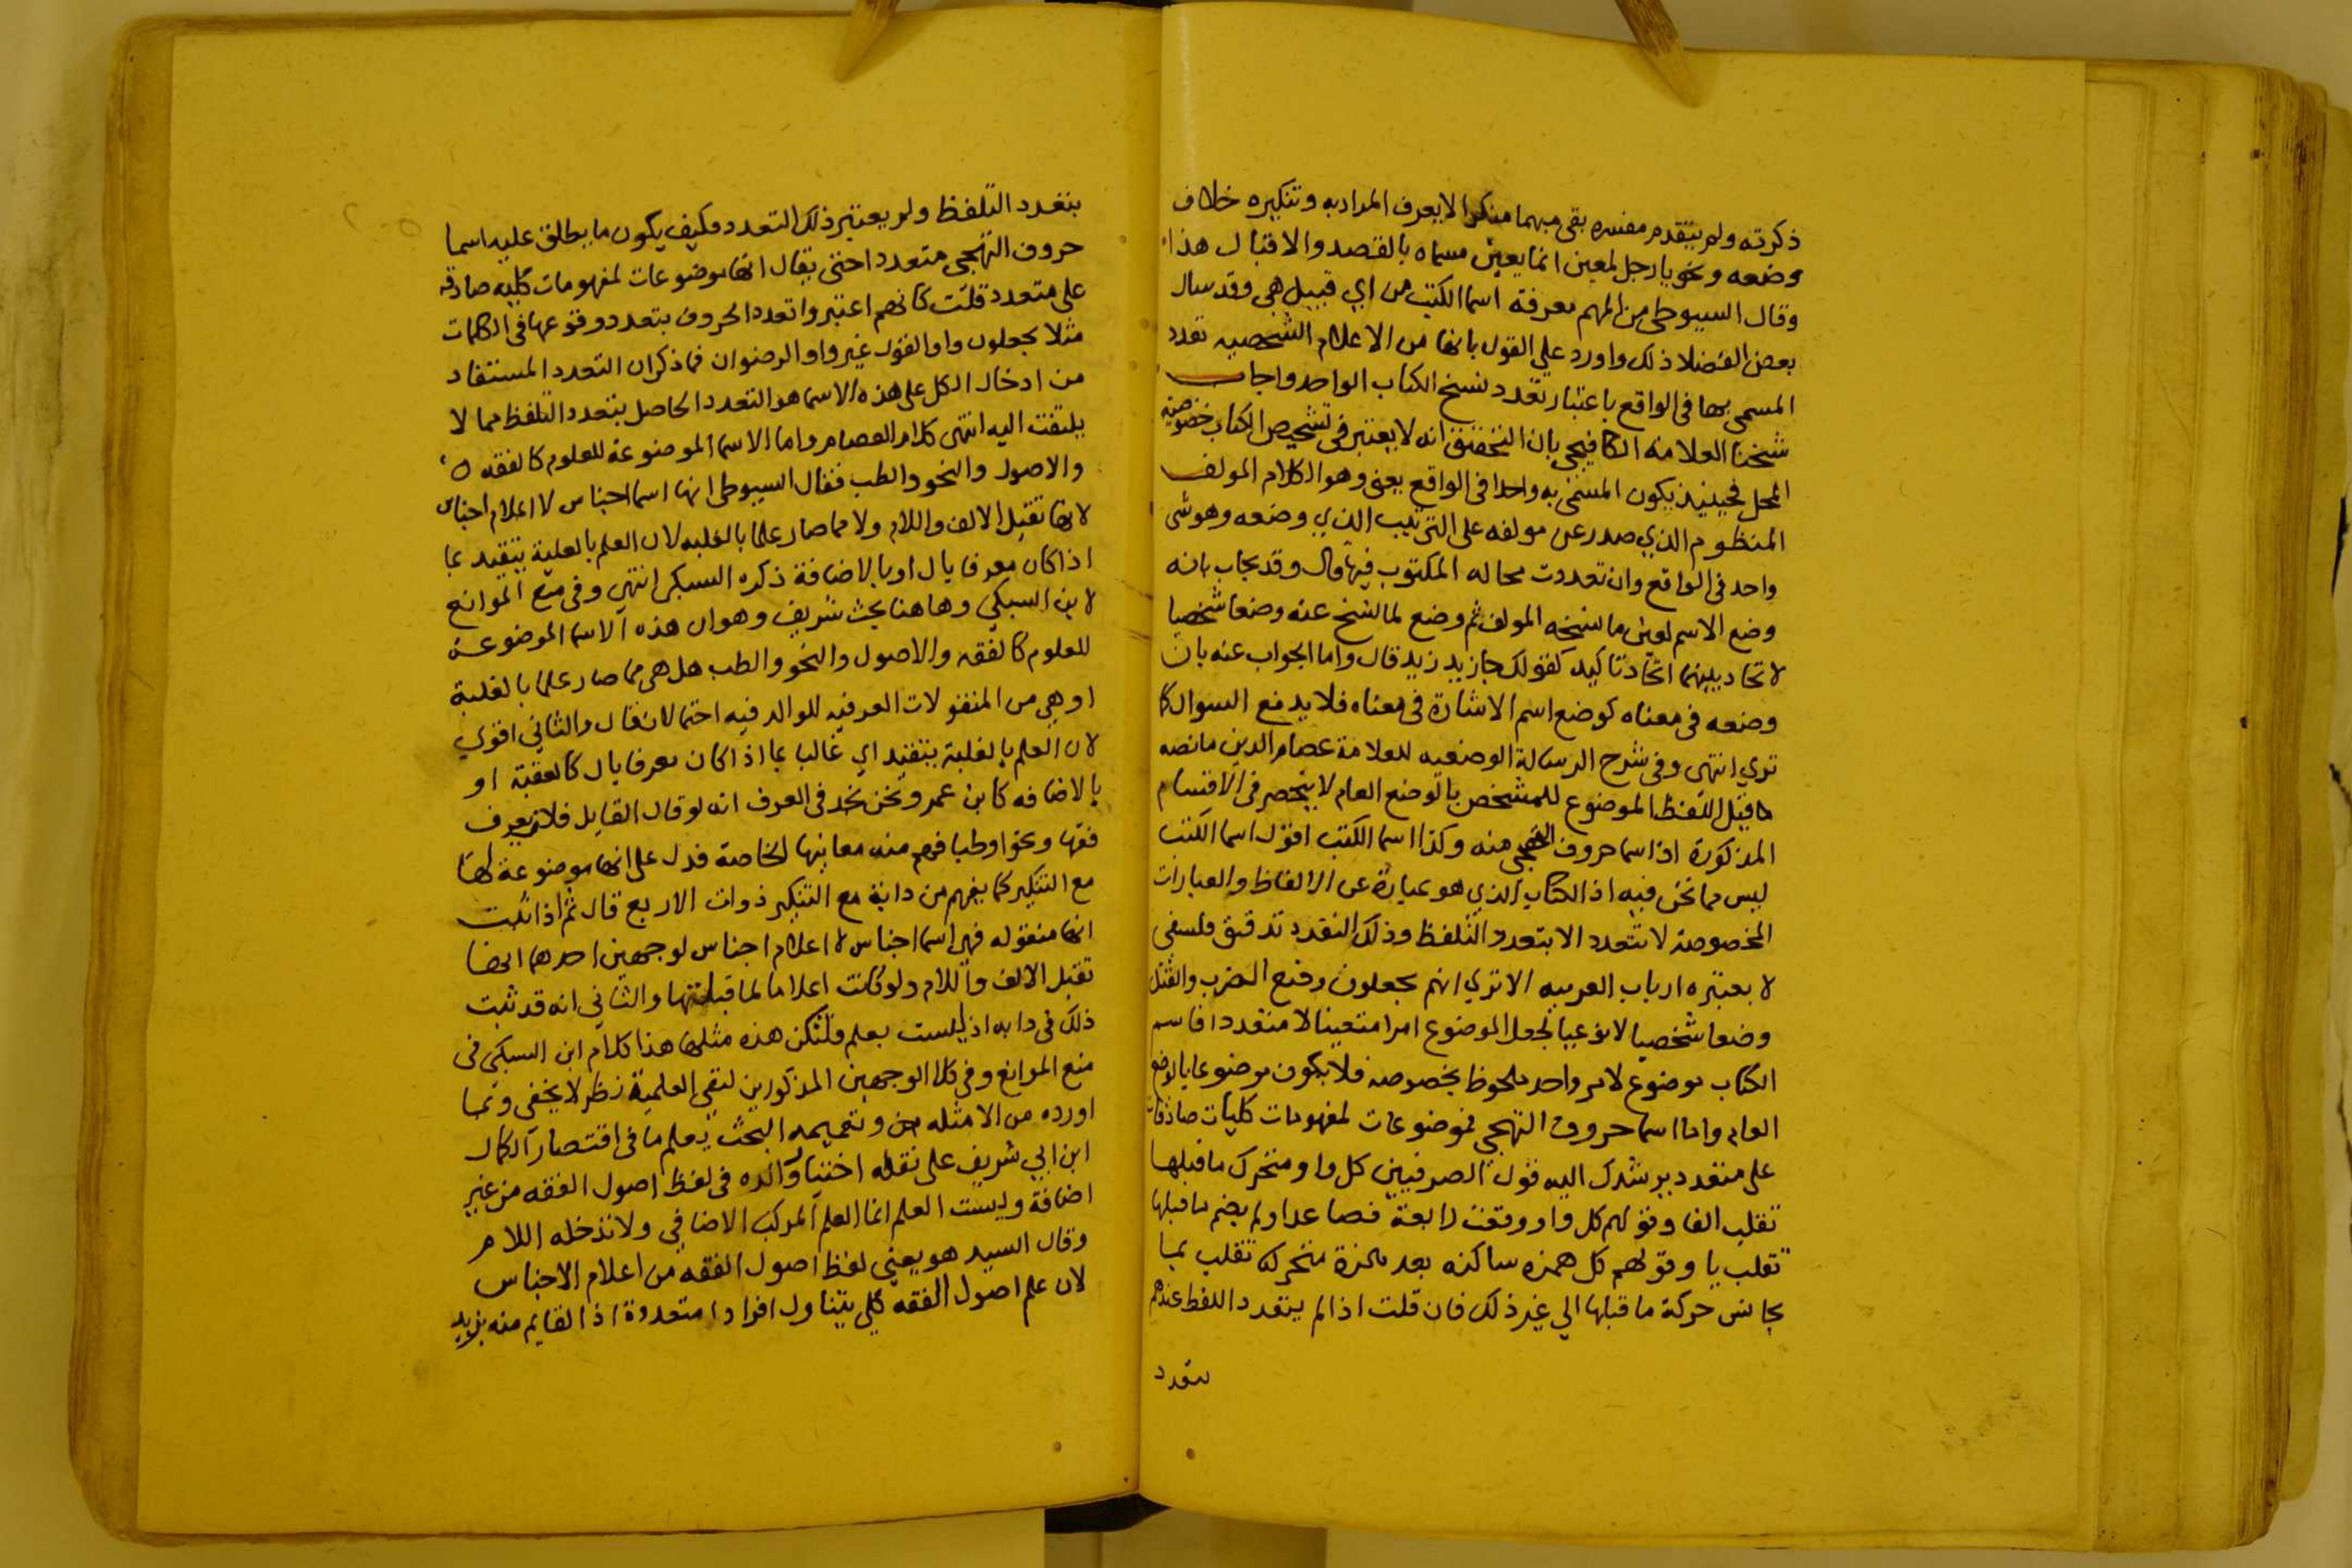 ذكرته ولم يتقدم مفسره بقى مبهما منكرا لا يعرف المراد به وتنكيره خلاف
وضعه ونحو يا رجل لمعين انما يعين مسماه بالقصد والاقبال هذا
وقال السيوطى من المهم معرفة اسما الكتب من اي قبيل هى وقد سال
بعض الفضلا ذلك واورد علي القول بانها من الاعلام الشخصيه تعدد
المسمى بها فى الواقع باعتبار تعدد نسخ الكتاب الواحد واجاب
شيخنا العلامة الكافيجى بان التحقيق انه لا يعتبر فى تشخيص الكتاب خصوصية
المحل فحينيذ يكون المسمى به واحدا فى الواقع يعنى وهو الكلام المولف
المنظوم الذي صدر عن مولفه على الترتيب الذي وضعه وهو شى
واحد فى الواقع وان تعددت محاله المكتوب فيها قال وقد يجاب بانه
وضع الاسم لعين ما نسخه المولف ثم وضع لما نسخ عنه وضعا شخصيا
لاتحاد بينهما اتحاد تاكيد كقولك جا زيد زيد قال واما الجواب عنه بان
وضعه فى معناه كوضع اسم الاشارة فى معناه فلا يدفع السوال كما
تري انتهى وفى شرح الرسالة الوضعيه للعلامة عصام الدين مانصه
ما قيل اللفظ الموضوع للمشخص بالوضع العام لا ينحصر فى الاقسام
المذكورة اذ اسما حروف التهجى منه وكذا اسما الكتب اقول اسما الكتب
ليس مما نحن فيه اذ الكتاب الذي هو عبارة عن الالفاظ والعبارات
المخصوصة لا يتعدد الا بتعدد التلفظ وذلك التعدد تدقيق فلسفى
لا يعتبره ارباب العربيه الا تري انهم يجعلون وضع الضرب والقتل
وضعا شخصيا لا نوعيا لجعل الموضوع امرا متعينا لا متعددا فاسم
الكتاب موضوع لامر واحد ملحوظ بخصوصه فلا يكون موضوعا بالوضع
العام واما اسما حروف التهجي فموضوعات لمفهومات كليات صادقات
على متعدد يرشدك اليه قول الصرفيين كل واو متحرك ما قبلها
تقلب الفا وقولهم كل واو وقعت رابعة فصاعدا ولم يضم ما قبلها
تقلب يا وقولهم كل همزه ساكنه بعد همزة متحركه تقلب بما
يجانس حركة ما قبلها الي غير ذلك فان قلت اذا لم يتعدد اللفظ عندهم
بتعدد
بتعدد التلفظ ولم يعتبر ذلك التعدد فكيف يكون ما يطلق عليه اسما
حروف التهجى متعددا حتى يقال انها موضوعات لمفهومات كليه صادقه
على متعدد قلت كانهم اعتبروا تعدد الحروف بتعدد وقوعها فى الكلمات
مثلا يجعلون واو القول غير واو الرضوان فما ذكر ان التعدد المستفاد
من ادخال الكل على هذه الاسما هو التعدد الحاصل بتعدد التلفظ مما لا
يلتفت اليه انتهى كلام العصام واما الاسما الموضوعة للعلوم كالفقه
والاصول والنحو والطب فقال السيوطى انها اسما اجناس لا اعلام اجناس
لانها تقبل الالف واللام ولا مما صار علما بالغلبه لان العلم بالغلبة يتقيد بما
اذا كان معرفا بال او بالاضافة ذكره السبكى انتهى وفى منع الموانع
لابن السبكي وهاهنا بحث شريف وهو ان هذه الاسما الموضوعة
للعلوم كالفقه والاصول والنحو والطب هل هى مما صار علما بالغلبة
او هي من المنقولات العرفيه للوالد فيه احتمالان قال والثاني اقوي
لان العلم بالغلبة يتقيد اي غالبا بما اذا كان معرفا بال كالعقبة او
بالاضافه كابن عمر ونحن نجد فى العرف انه لو قال القايل فلان يعرف
فقها ونحوا وطبا فهم منه معانيها الخاصة فدل على انها موضوعة لها
مع التنكير كما يفهم من دابة مع التنكير ذوات الاربع قال ثم اذا ثبت
انها منقوله فهى اسما اجناس لا اعلام اجناس لوجهين احدهما انها
تقبل الالف واللام ولو كانت اعلاما لما قبلتها والثاني انه قد ثبت
ذلك فى دابه اذ ليست بعلم فلتكن هذه مثلها هذا كلام ابن السبكى فى
منع الموانع وفى كلا الوجهين المذكورين لنفى العلمية نظر لا يخفى وبما
اورده من الامثله وتعميمه البحث يعلم ما فى اقتصار الكمال
ابن ابي شريف على نقله اختيار والده فى لفظ اصول الفقه من غير
اضافة وليست العلم انما العلم المركب الاضافي ولا تدخله اللام
وقال السيد هو يعنى لفظ اصول الفقه من اعلام الاجناس
لان علم اصول الفقه كلي يتناول افرادا متعددة اذ القايم منه بزيد